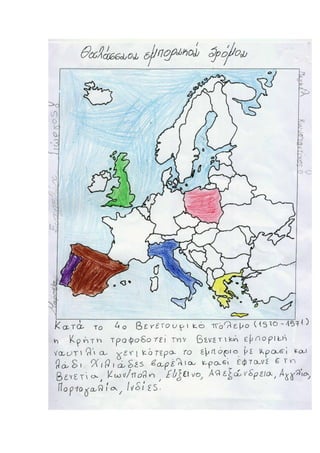 Θαλάσσιοι εμπορικοί δρόμοι
Κατά το 4ο Βενετουρικο πόλεμο (1570-1571)
η Κρήτη τροφοδοτεί την Βενετική εμπορική
ναυτιλία γενικότερα το εμπόριο με κρασί και
λάδι. Χιλιάδες βαρέλια κρασί έφτανε στη
Βενετία, Κων/πολη, Εύξεινο, Αλεξάνδρεια, Αγγλία,
Πορτογαλία, Ινδίες.